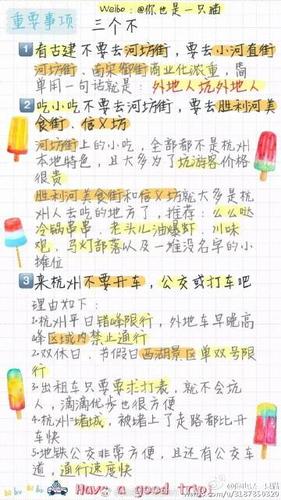 Weibo：@你也是一只猫
重要事项
三个不
1 看古建不要去河坊街，要去小河直街
河坊街、南宋御街商业化严重，简
单用一句话就是：外地人坑外地人
2 吃小吃不要去河坊街，要去胜利河美
食街、信义坊
河坊街上的小吃，全部都不是杭州
本地特色，且大多为了坑游客价格
很贵
胜利河美食街和信义坊就大多是杭
州人去吃的地方了，推荐：么么哒
冷锅串串、老头儿油爆虾、川味
吧、马灯部落以及一堆没名字的小
摊位
3 来杭州不要开车，公交或打车吧
理由如下：
1.杭州平日错峰限行，外地车早晚高
峰区域内禁止通行
2.双休日、节假日西湖景区单双号限
行
3.出租车只要要求打表，就不会坑
人，滴滴优步也很方便
4.杭州堵城，被堵上了走路都比开
车快
5.地铁公交非常方便，且还有公交车
道，通行速度快
Have a good trip!